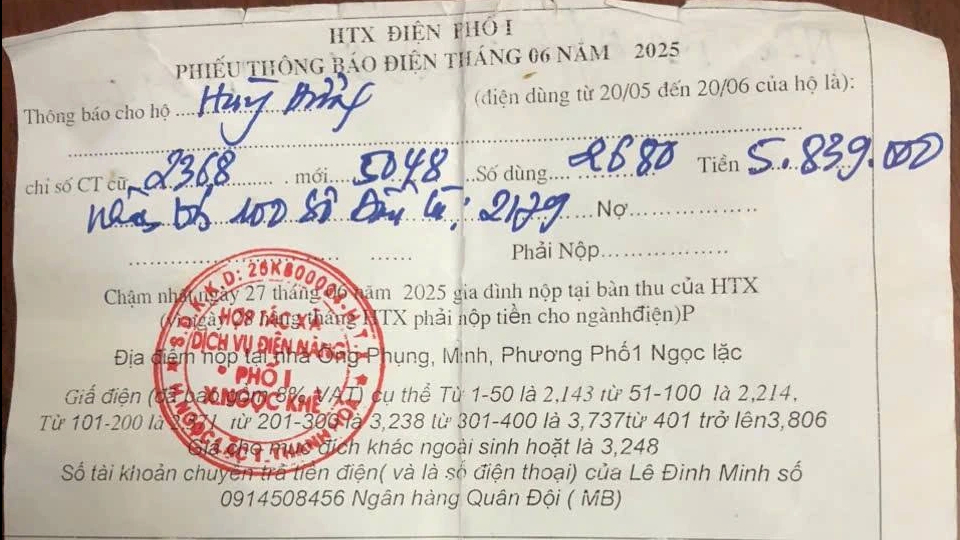 HTX ĐIỆN PHỐ I
PHIẾU THÔNG BÁO ĐIỆN THÁNG 06 NĂM 2025
Thông báo cho hộ ....Huỳ.......... (điện dùng từ 20/05 đến 20/06 của hộ là):
chỉ số CT cũ 2368 . mới 5048 ..Số dùng.... 2680 Tiền 5.839.000
100 số 2129 ... Nợ................
Phải Nộp................
Chậm nhất ngày 27 tháng 06 năm 2025 gia đình nộp tại bàn thu của HTX
(Vì ngày 28 hàng tháng HTX phải nộp tiền cho ngànhđiện)P
Địa điểm nộp tại nhà Ông Phụng, Minh, Phương Phố1 Ngọc lặc
Giấ điện (đã bao gồm 8% VAT) cụ thể Từ 1-50 là 2,143 từ 51-100 là 2,214,
Từ 101-200 là từ 201-300 là 3,238 từ 301-400 là 3,737từ 401 trở lên3,806
Giá cho mục đích khác ngoài sinh hoặt là 3,248
Số tài khoản chuyển trả tiền điện( và là số điện thoại) của Lê Đình Minh số
0914508456 Ngân hàng Quân Đội ( MB)
HỢP TÁC XÃ
DỊCH VỤ ĐIỆN NĂNG
PHỐ I
X.NGỌC KHÊ